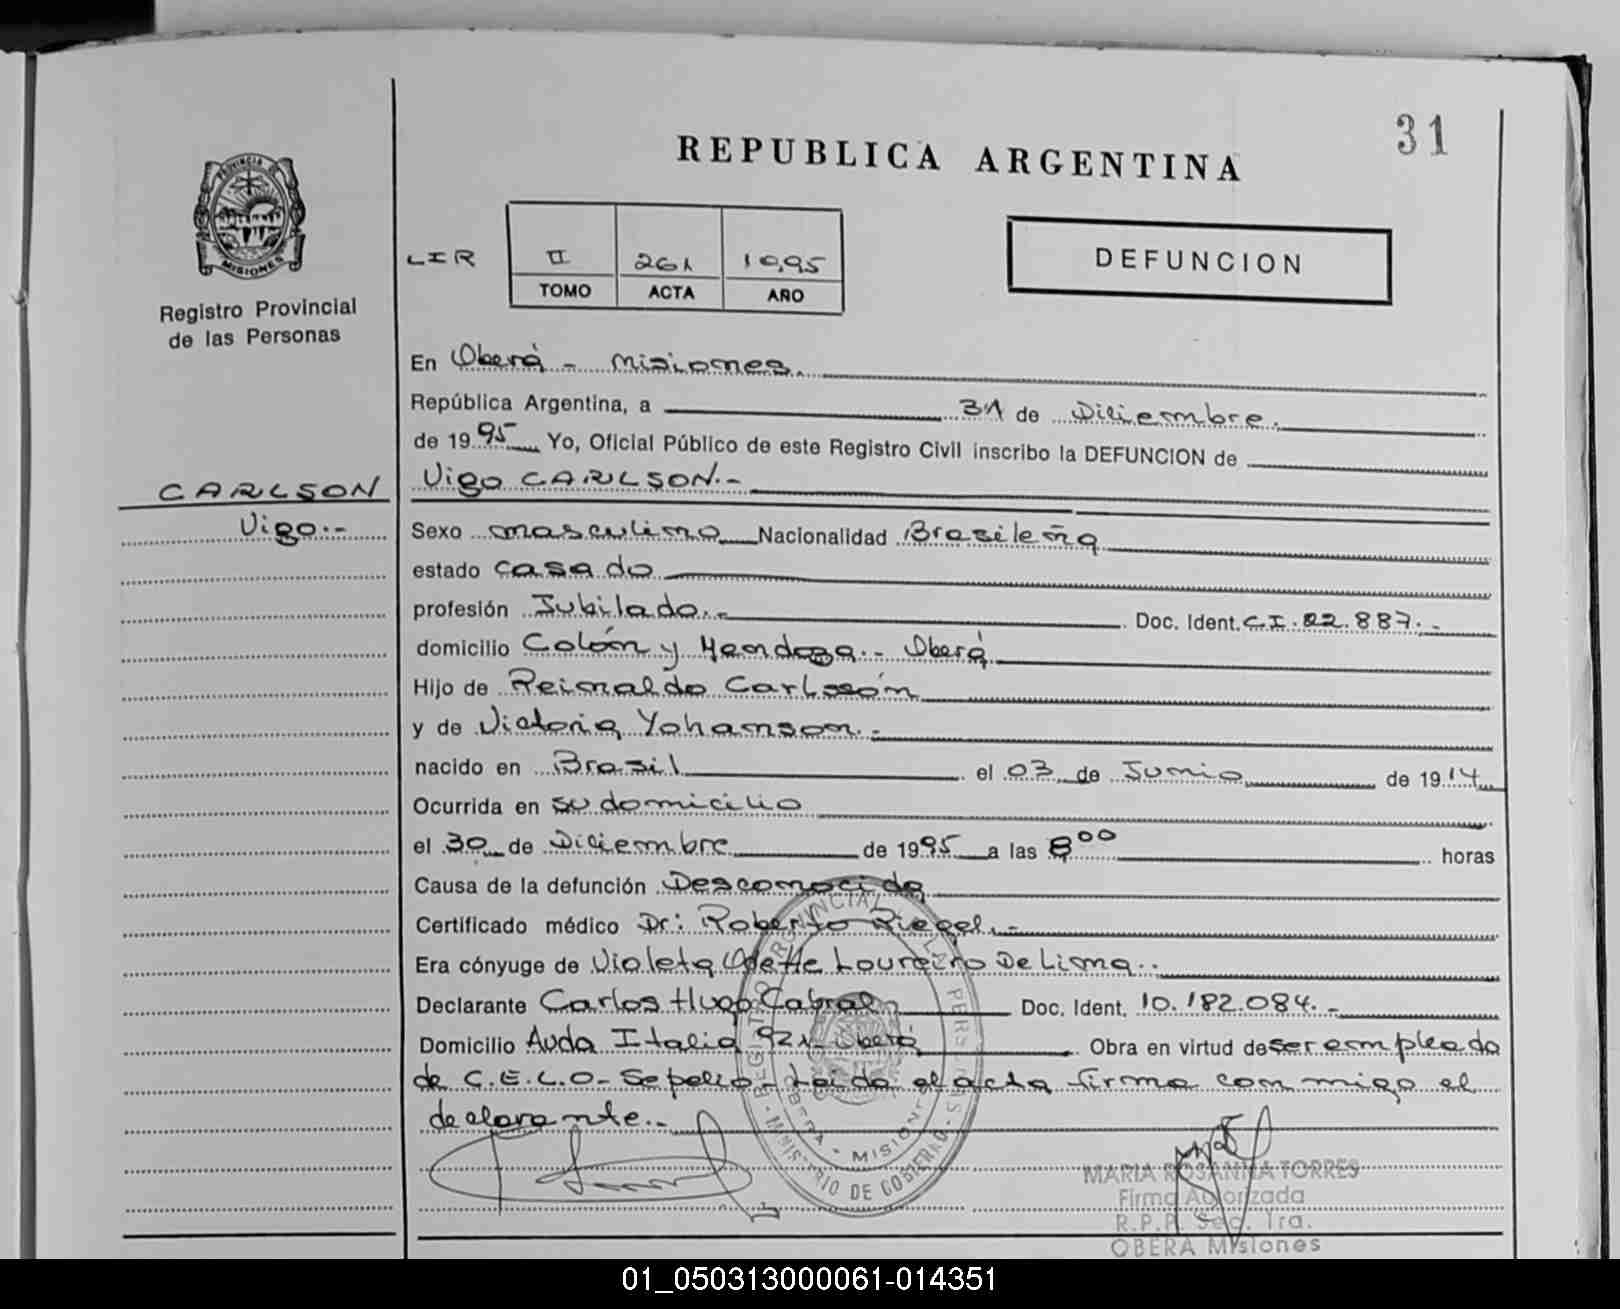 31
REPUBLICA ARGENTINA
PROVINCIA DE
MISIONES
Registro Provincial
de las Personas
LIR II 261 1995
TOMO ACTA AÑO
DEFUNCION
En Oberá - Misiones.
República Argentina, a 31 de Diciembre.
de 1995 Yo, Oficial Público de este Registro Civil inscribo la DEFUNCION de
CARLSON
Vigo CARLSON.-
Vigo.-
Sexo masculino Nacionalidad Brasileña
estado casado
profesión Jubilado.- Doc. Ident. C.I. 22.887.-
domicilio Colón y Mendoza.- Oberá
Hijo de Reinaldo Carlsson
y de Victoria Yohanson.-
nacido en Brasil el 03 de Junio de 1914
Ocurrida en su domicilio
el 30 de Diciembre de 1995 a las 8⁰⁰ horas
Causa de la defunción Desconocida
Certificado médico Dr: Roberto Riegel.-
Era cónyuge de Violeta Odette Loureiro De Lima.-
Declarante Carlos Hugo Cabral Doc. Ident. 10.182.084.-
Domicilio Avda Italia 921 Oberá Obra en virtud de ser empleado
de C.E.L.O - Sepelio - Leida el acta firma conmigo el
declarante.-
REGISTRO PROVINCIAL DE LAS PERSONAS
OBERA - MISIONES
MINISTERIO DE GOBIERNO
MARIA ROSANNA TORRES
Firma Autorizada
R.P.P. Sec. 1ra.
OBERA Misiones
01_050313000061-014351